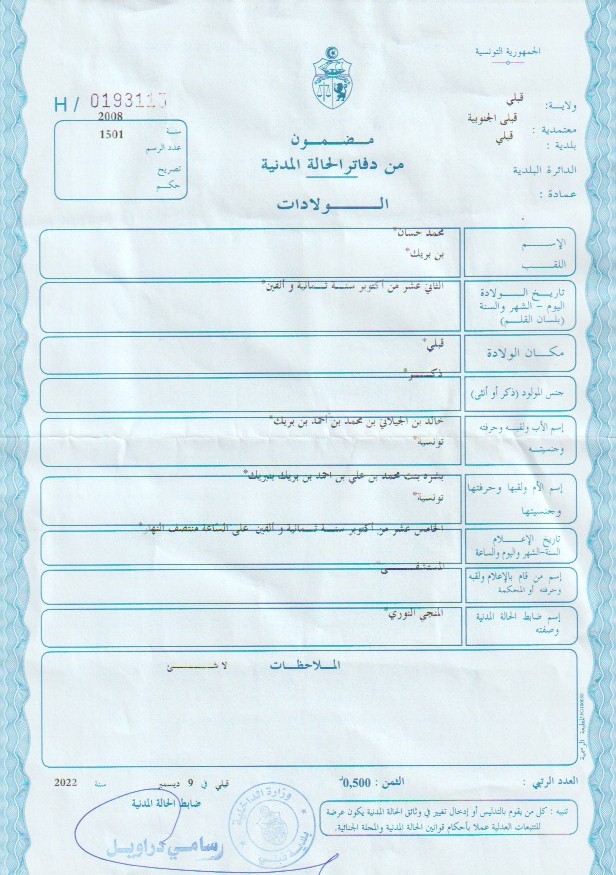 الجمهورية التونسية
ولاية: قبلي
معتمدية : قبلي الجنوبية
بلدية : قبلي
الدائرة البلدية
عمادة :
H / 0193113
2008
سنة
1501
عدد الرسم
تصريح
حكم
مضمون
من دفاتر الحالة المدنية
الولادات
الإسم
محمد حسان*
اللقب
بن بريك*
تاريخ الولادة
اليوم - الشهر والسنة
(بلسان القلم)
الثاني عشر من أكتوبر سنة ثمانية و ألفين*
مكان الولادة
قبلي*
جنس المولود (ذكر أو أنثى)
ذكر*
إسم الأب ولقبه وحرفته
وجنسيته
خالد بن الجيلاني بن محمد بن أحمد بن بريك*
تونسية*
إسم الأم ولقبها وحرفتها
وجنسيتها
بنت محمد بن علي بن احمد بن بريك
تونسية*
تاريخ الإعلام
السنة-الشهر واليوم والساعة
الخامس عشر من أكتوبر سنة ثمانية و ألفين على الساعة منتصف النهار*
إسم من قام بالإعلام ولقبه
وحرفته أو المحكمة
المستشفى*
إسم ضابط الحالة المدنية
وصفته
المنجي النوري*
الملاحظات
لا شئ
المطبعة الرسمية
العدد الرتبي :
الثمن : 0,500د
قبلي في 9 ديسمبر سنة 2022
ضابط الحالة المدنية
تنبيه : كل من يقوم بالتدليس أو إدخال تغيير في وثائق الحالة المدنية يكون عرضة
للتتبعات العدلية عملا بأحكام قوانين الحالة المدنية والمجلة الجنائية.
وزارة الداخلية
رسامي دراويل